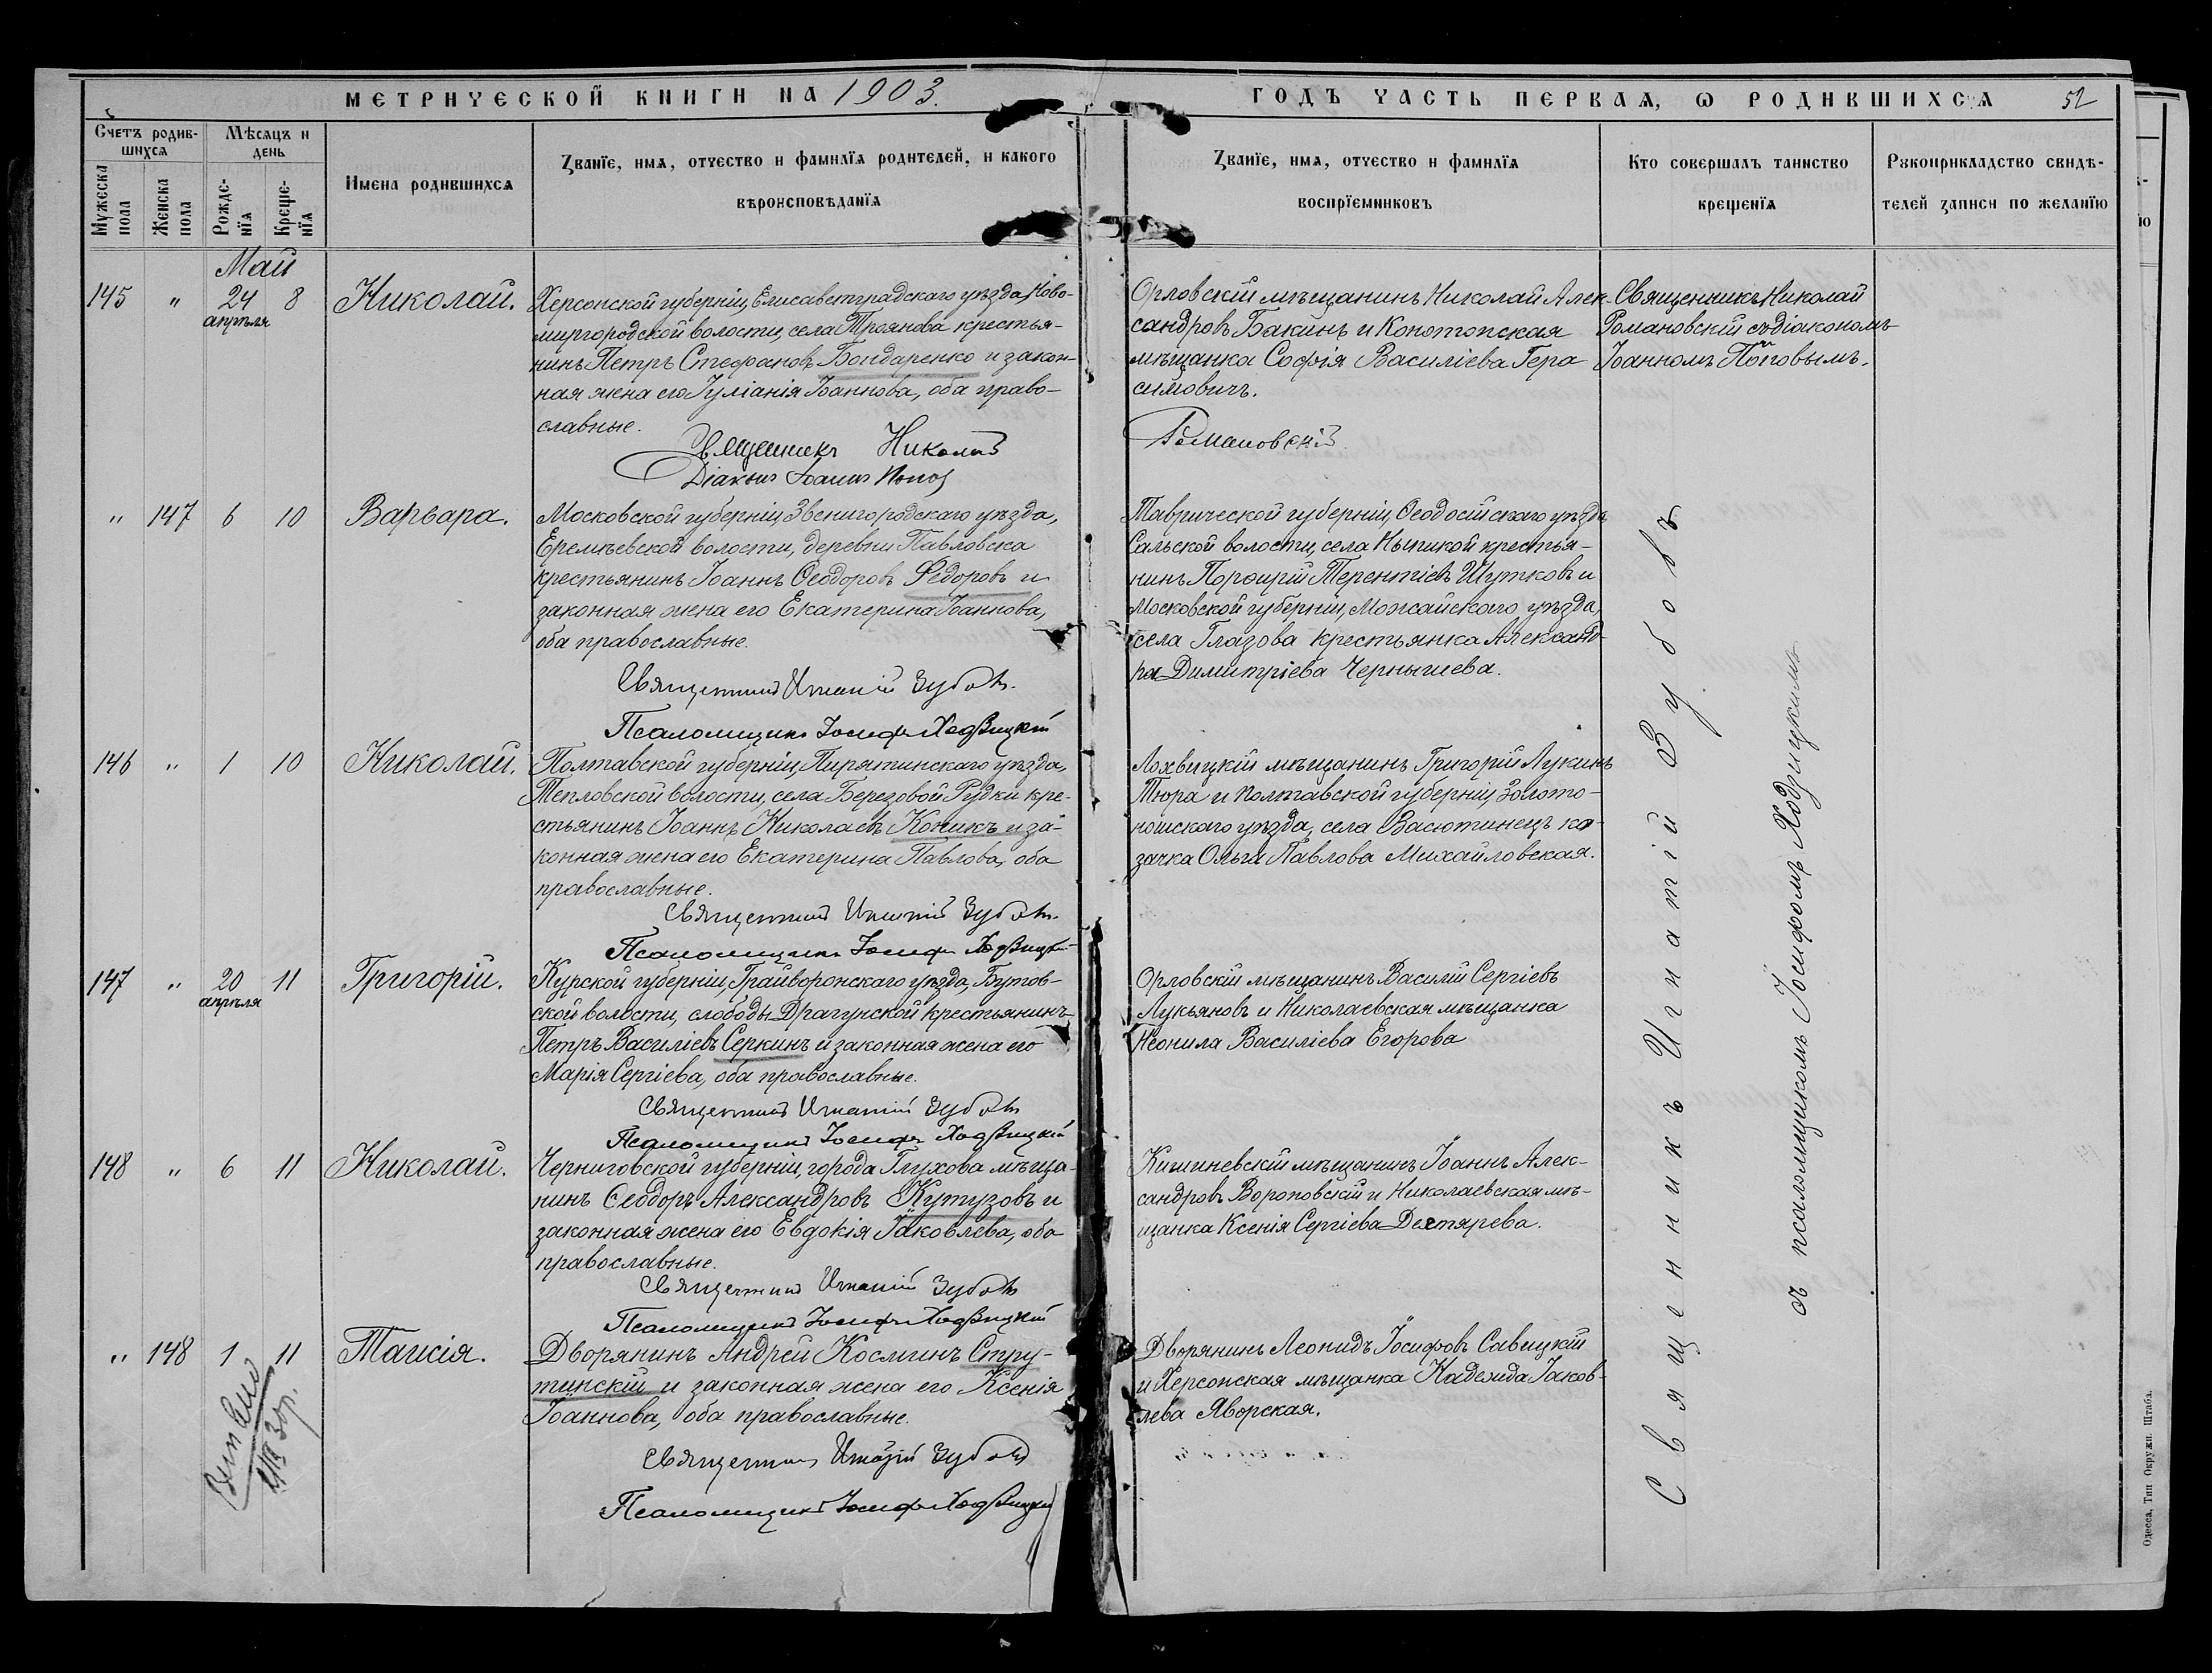 МЕТРИЧЕСКОЙ КНИГИ НА 1903.
ГОДЪ ЧАСТЬ ПЕРВАЯ, Ѡ РОДИВШИХСЯ 52
Счетъ родив-
шихся
Мѣсяцъ и
день
Мужеска пола
Женска пола
Рожде-
нїя
Креще-
нїя
Имена родившихся
Званїе, имя, отчество и фамилїя родителей, и какого
вѣроисповѣданїя
Званїе, имя, отчество и фамилїя
воспрїемниковъ
Кто совершалъ таинство
крещенїя
Рукоприкладство свидѣ-
телей записи по желанїю
Май
145 " 24 апрѣля 8 Николай.
Херсонской губерніи, Елисаветградскаго уѣзда, Ново-
миргородской волости, села Троянова крестья-
нинъ Петръ Стефановъ Бондаренко и закон-
ная жена его Іуліанія Іоаннова, оба право-
славные.
Священникъ Николай
Діаконъ Іоаннъ Попов
Орловскій мѣщанинъ Николай Алек-
сандровъ Бакинъ и Конотопская
мѣщанка Софія Василіева Гера
симовичъ.
Романовскій
Священникъ Николай
Романовскій съ діакономъ
Іоанномъ Поповымъ.
" 147 6 10 Варвара.
Московской губерніи, Звенигородскаго уѣзда,
Еремѣевской волости, деревни Павловска
крестьянинъ Іоаннъ Ѳеодоровъ Ѳедоровъ и
законная жена его Екатерина Іоаннова,
оба православные.
Священникъ Игнатій Зубовъ.
Псаломщикъ Іосифъ Ходзицкій
Таврической губерніи, Ѳеодосійскаго уѣзда
Сальской волости, села крестья-
нинъ Порфирій Терентіевъ Шутковъ и
Московской губерніи, Можайскаго уѣзда,
села Глазова крестьянка Александ-
ра Димитріева Чернышева.
146 " 1 10 Николай.
Полтавской губерніи, Пирятинскаго уѣзда,
Тепловской волости, села Березовой Рудки кре-
стьянинъ Іоаннъ Николаевъ Коникъ и за-
конная жена его Екатерина Павлова, оба
православные.
Священникъ Игнатій Зубовъ.
Псаломщикъ Іосифъ Ходзицкій
Лохвицкій мѣщанинъ Григорій Лукинъ
Тюра и Полтавской губерніи, Золото-
ношскаго уѣзда, села Васютинецъ ка-
зачка Ольга Павлова Михайловская.
147 " 20 апрѣля 11 Григорій.
Курской губерніи, Грайворонскаго уѣзда, Бутов-
ской волости, слободы Драгунской крестьянинъ
Петръ Василіевъ Серкинъ и законная жена его
Марія Сергіева, оба православные.
Священникъ Игнатій Зубовъ
Псаломщикъ Іосифъ Ходзицкій
Орловскій мѣщанинъ Василій Сергіевъ
Лукьяновъ и Николаевская мѣщанка
Неонила Василіева Егорова
148 " 6 11 Николай.
Черниговской губерніи, города Глухова мѣща-
нинъ Ѳеодоръ Александровъ Кутузовъ и
законная жена его Евдокія Іаковлева, оба
православные.
Священникъ Игнатій Зубовъ
Псаломщикъ Іосифъ Ходзицкій
Кишиневскій мѣщанинъ Іоаннъ Алек-
сандровъ Вороповскій и Николаевская мѣ-
щанка Ксенія Сергіева Дехтярева.
" 148 1 11 Таисія.
Дворянинъ Андрей Косминъ Стру-
тинскій и законная жена его Ксенія
Іоаннова, оба православные.
Священникъ Игнатій Зубовъ
Псаломщикъ Іосифъ Ходзицкій
Дворянинъ Леонидъ Іосифовъ Савицкій
и Херсонская мѣщанка Надежда Іаков-
лева Яворская.
Священникъ Игнатій Зубовъ
съ псаломщикомъ Іосифомъ Ходзицкимъ
Одесса, Тип Окружн. Штаба.